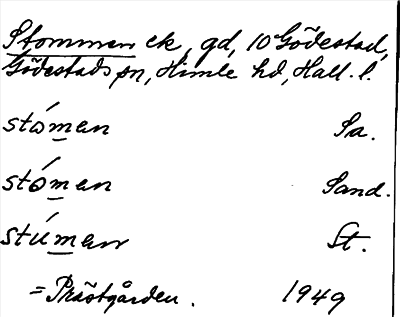 Stommen ek, gd, 10 Gödestad,
Gödestads sn, Himle hd, Hall. l.
stómen Sa.
stómen Sand.
stúmen St.
= Prästgården. 1949